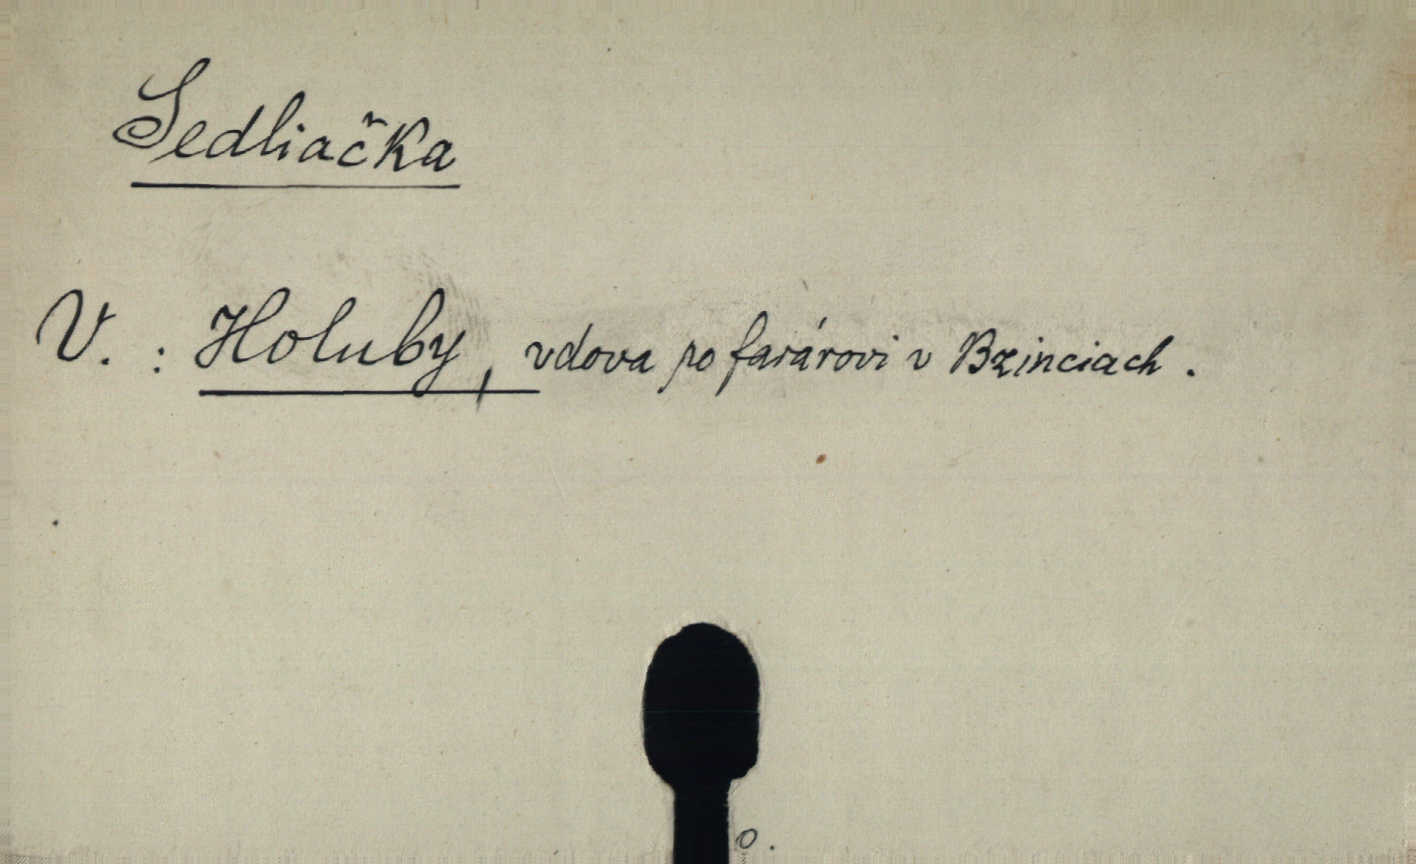 Sedliačka
V. : Holuby, vdova po farárovi v Bzinciach.
o.